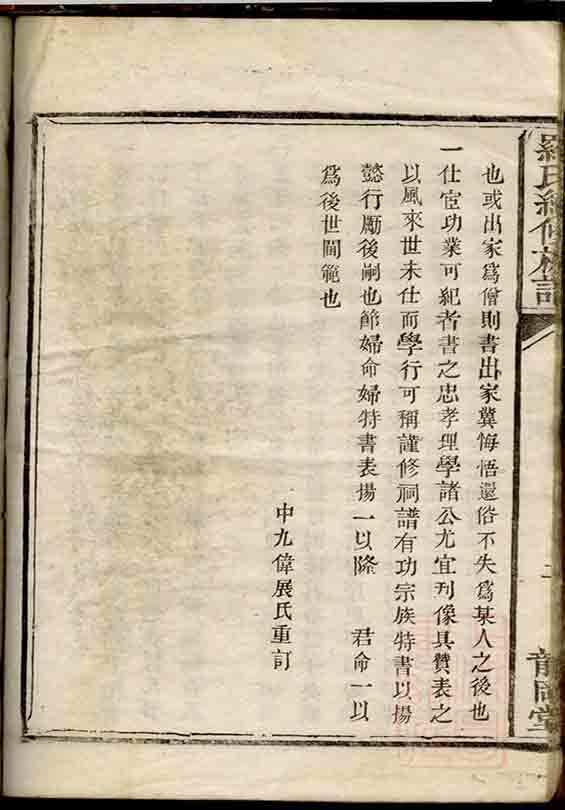 羅氏續修族譜
二
龍岡堂
也或出家爲僧則書出家冀悔悟還俗不失爲某人之後也
一仕宦功業可紀者書之忠孝理學諸公尤宜刋像具贊表之
以風來世未仕而學行可稱謹修祠譜有功宗族特書以揚
懿行勵後嗣也節婦命婦特書表揚一以隆 君命一以
爲後世閫範也
中九偉展氏重訂